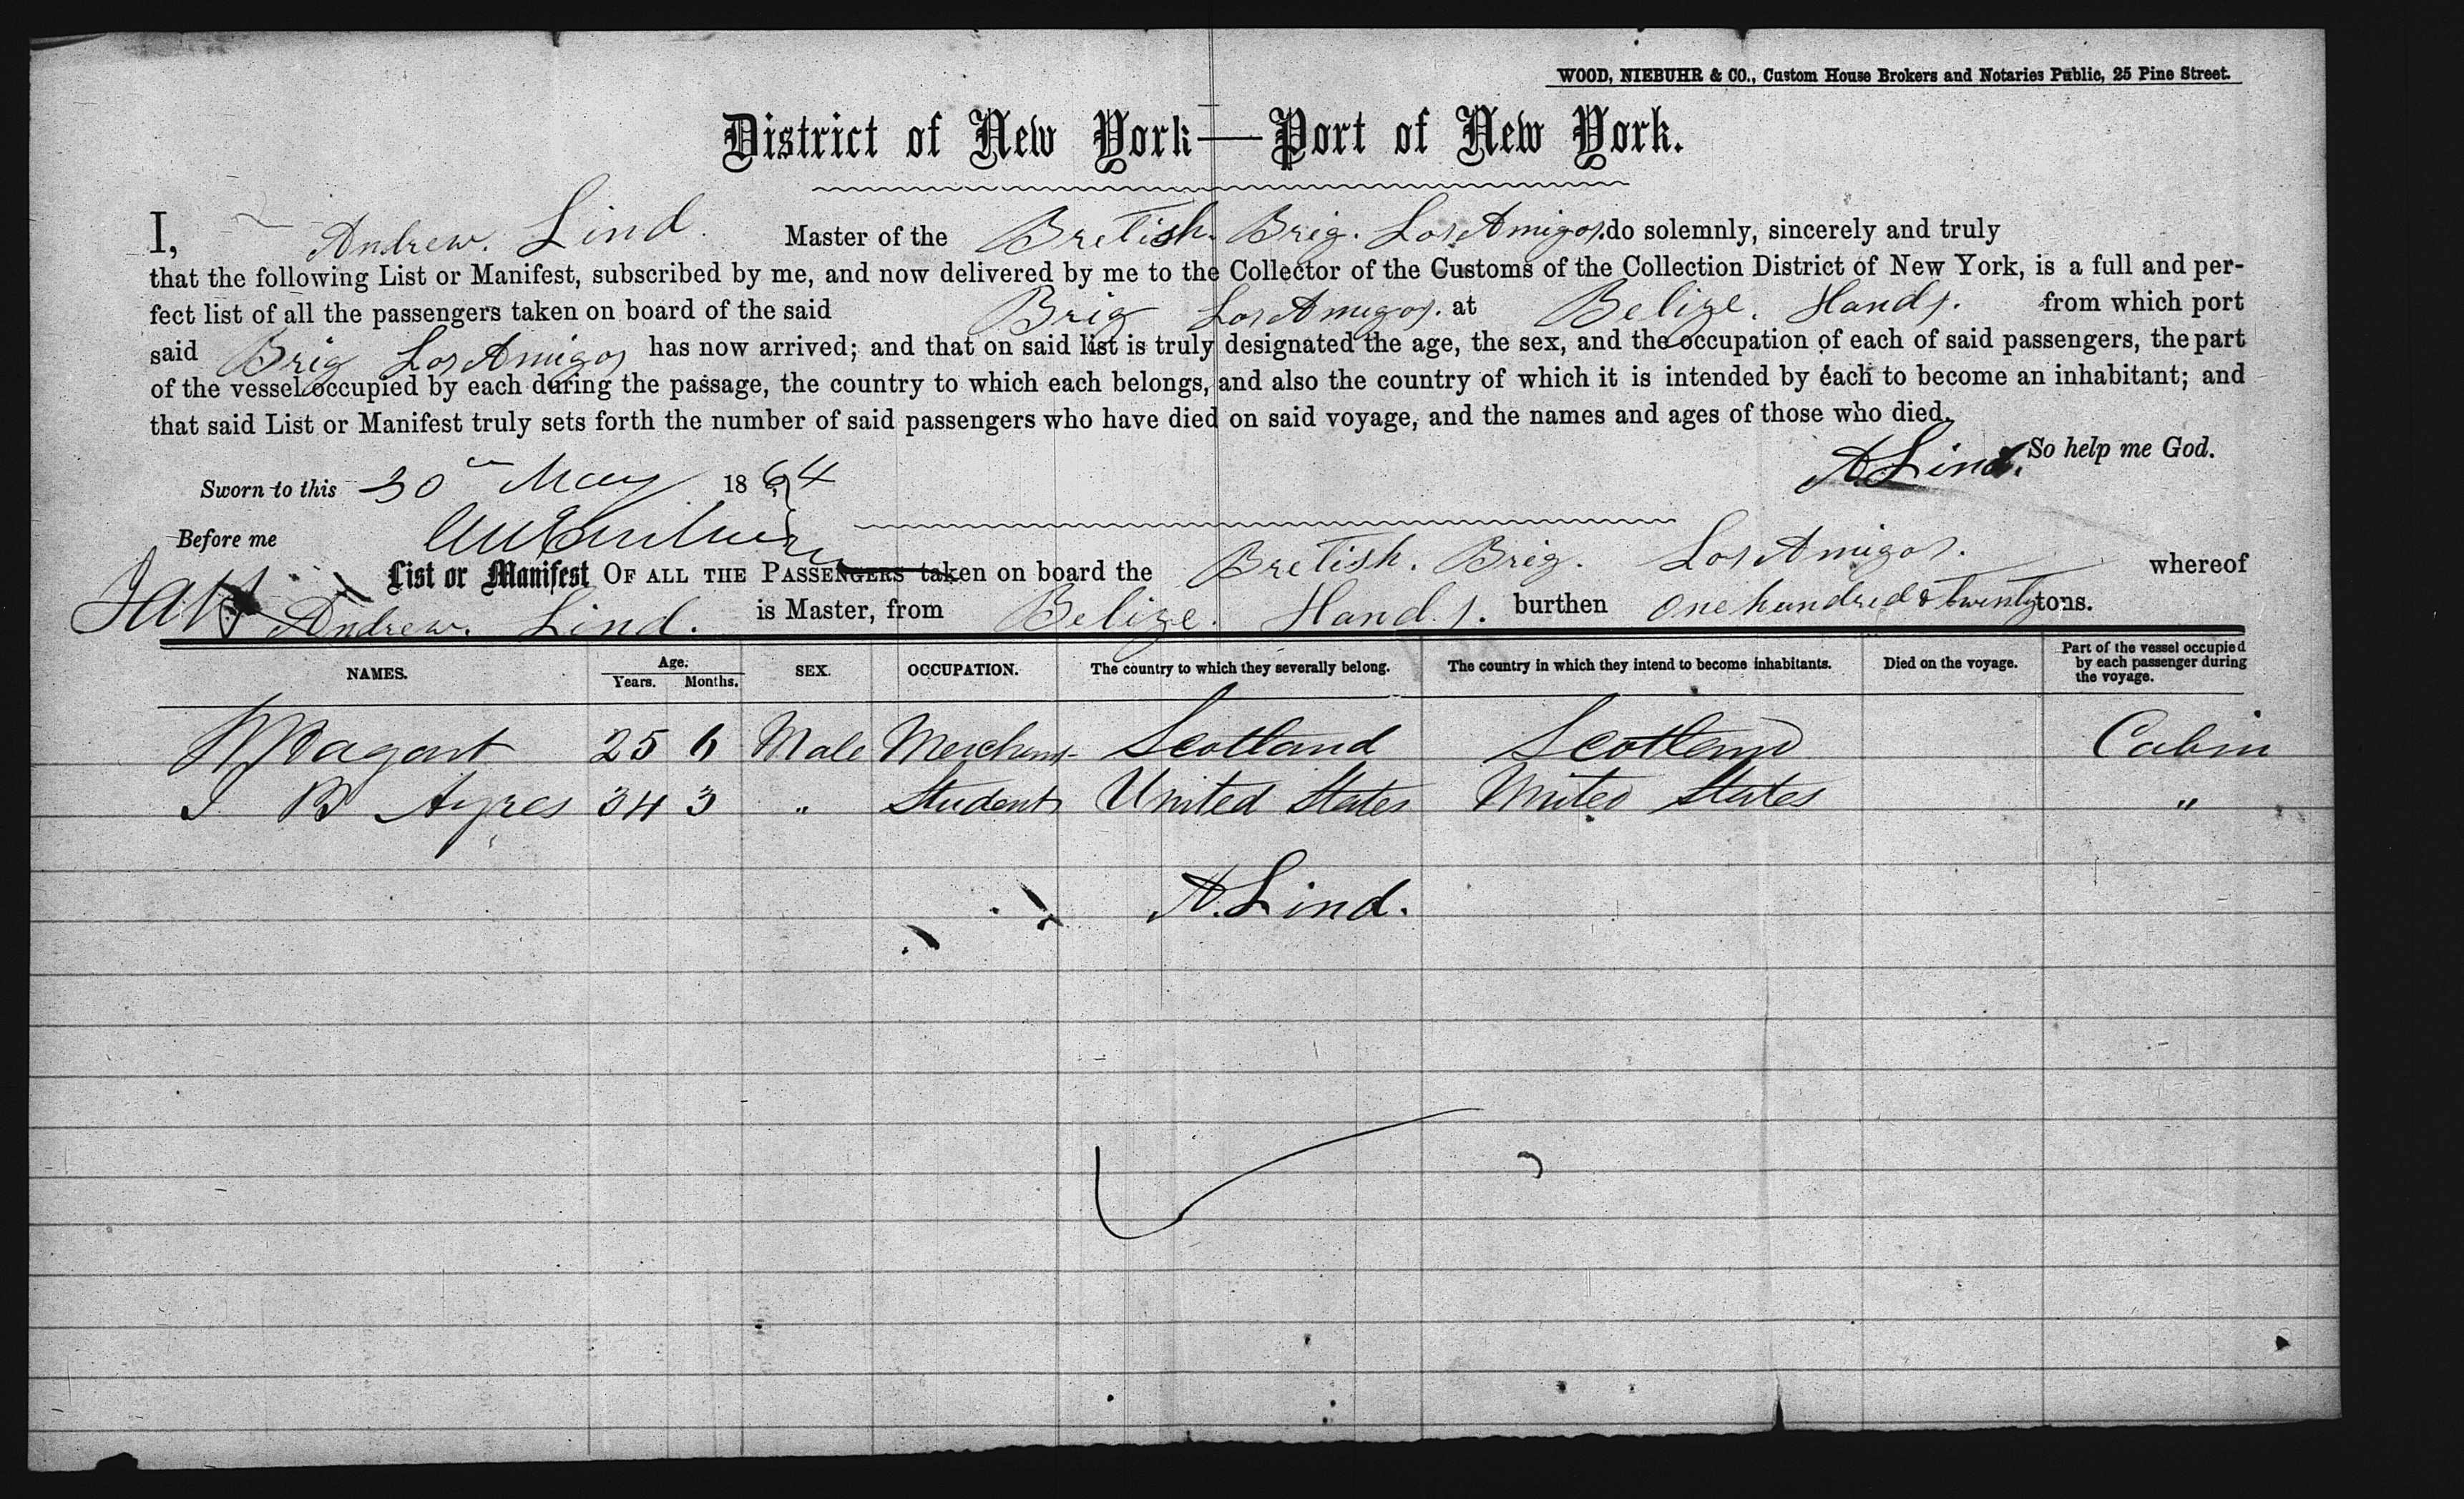 WOOD, NIEBUHR & CO., Custom House Brokers and Notaries Public, 25 Pine Street.
District of New York—Port of New York.
I, Andrew. Lind. Master of the Bretish. Brig. Los Amigos. do solemnly, sincerely and truly
that the following List or Manifest, subscribed by me, and now delivered by me to the Collector of the Customs of the Collection District of New York, is a full and per-
fect list of all the passengers taken on board of the said Brig Los Amigos. at Belize. Hands. from which port
said Brig Los Amigos has now arrived; and that on said list is truly designated the age, the sex, and the occupation of each of said passengers, the part
of the vessel occupied by each during the passage, the country to which each belongs, and also the country of which it is intended by each to become an inhabitant; and
that said List or Manifest truly sets forth the number of said passengers who have died on said voyage, and the names and ages of those who died.
A. Lind. So help me God.
Sworn to this 30 May 1864
Before me
List or Manifest OF ALL THE PASSENGERS taken on board the Bretish. Brig. Los Amigos. whereof
Andrew. Lind. is Master, from Belize. Hands. burthen One hundred & twenty tons.
NAMES. Age. Years. Months. SEX. OCCUPATION. The country to which they severally belong. The country in which they intend to become inhabitants. Died on the voyage. Part of the vessel occupied by each passenger during the voyage.
25 6 Male Merchant Scotland Scotland Cabin
B Ayres 34 3 " Student United States United States "
A. Lind.